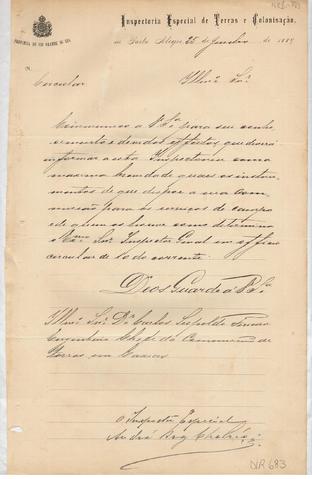 Inspectoria Especial de Terras e Colonisação,
PROVINCIA DO RIO GRANDE DO SUL
em Porto Alegre, 25 de de 1889
N.
Circular Illmo Sr.
Communico a V. Sa. para seu conhe-
cimento e devidos effeitos, que deverá
informar a esta Inspectoria com a
maxima brevidade quaes os instru-
mentos de que dispõe a sua com-
missão para os serviços de campo
e de quem os houve como determina
o Exmo Snr Inspector Geral em officio
circular de 10 do corrente.
Deos Guarde a V. Sa.
Illmo Snr. Dr. Carlos Leopoldo
Engenheiro Chefe da Commissão de
Terras em Caxias
O Inspector Especial
André
NR 683